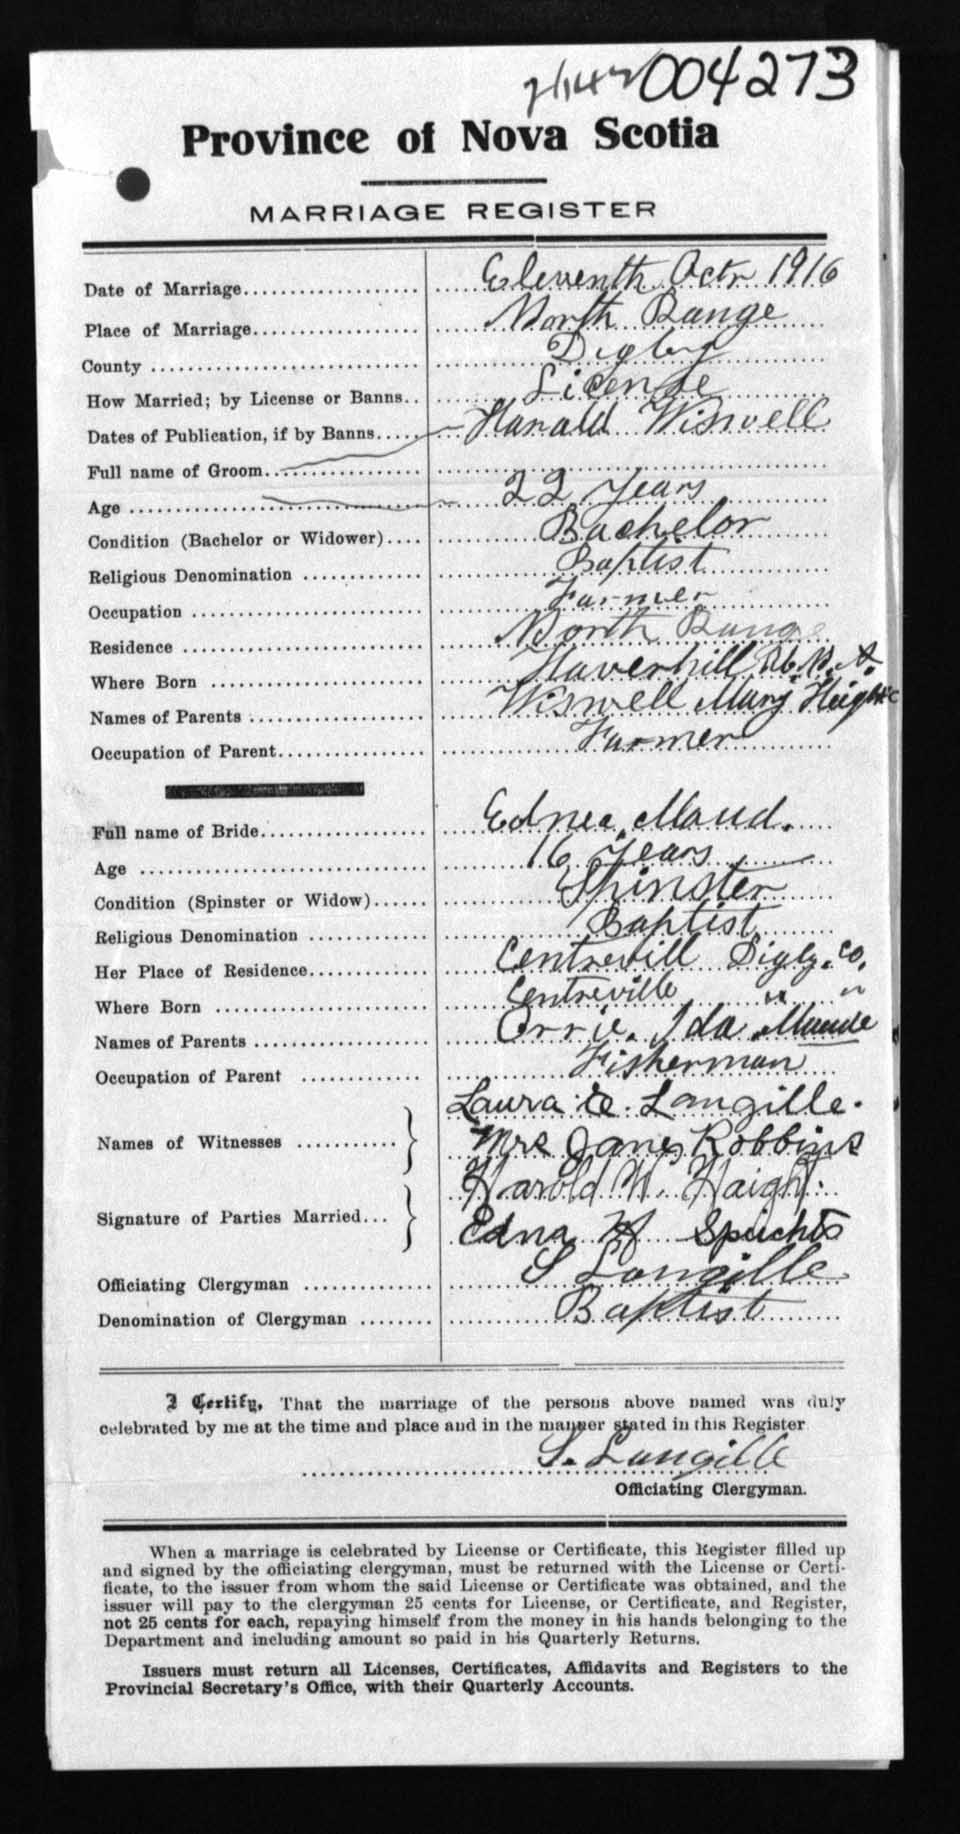 004273
Province of Nova Scotia
MARRIAGE REGISTER
Date of Marriage.................... Eleventh Octr 1916
Place of Marriage.................. North Range
County ............................. Digby
How Married; by License or Banns.. License
Dates of Publication, if by Banns..... Harald Wiswell
Full name of Groom.................
Age ................................ 22 Years
Condition (Bachelor or Widower).... Bachelor
Religious Denomination ............. Baptist
Occupation ......................... Farmer
Residence .......................... North Range
Where Born ....................... Haverhill
Names of Parents ................... Wiswell Mary Haight
Occupation of Parent................ Farmer
Full name of Bride.................. Ednea Maud.
Age ............................... 16 Years
Condition (Spinster or Widow)...... Spinster
Religious Denomination ............. Baptist
Her Place of Residence............. Centrevill Digby. Co.
Where Born ....................... Centreville " "
Names of Parents ................... Orrie. Ida Maude
Occupation of Parent ............. Fisherman
Names of Witnesses ........... } Laura E. Langille.
Mrs James Robbins
Signature of Parties Married... } Harold W. Haight.
Edna M Spichts
Officiating Clergyman .............. S Langille
Denomination of Clergyman ........ Baptist
I Certify, That the marriage of the persons above named was duly
celebrated by me at the time and place and in the manner stated in this Register
S. Langille
Officiating Clergyman.
When a marriage is celebrated by License or Certificate, this Register filled up
and signed by the officiating clergyman, must be returned with the License or Certi-
ficate, to the issuer from whom the said License or Certificate was obtained, and the
issuer will pay to the clergyman 25 cents for License, or Certificate, and Register,
not 25 cents for each, repaying himself from the money in his hands belonging to the
Department and including amount so paid in his Quarterly Returns.
Issuers must return all Licenses, Certificates, Affidavits and Registers to the
Provincial Secretary's Office, with their Quarterly Accounts.